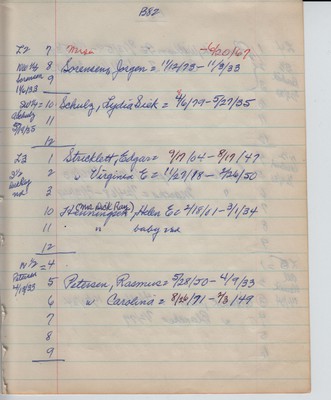 B82
L2 7 -6/20/67
N 1/2 8 Sorensen, Jorgen = 11/12/73 - 11/3/33
Sorensen 9
11/6/33
S 1/2 = 10 Schulz, Lydia Siek = 4/6/79 - 5/27/35
Schulz 11
5/29/35
12
L3 1 Stricklett, Edgar = 9/17/04 - 8/17/47
2 " Virginia E = 11/27/88 - 2/26/50
nd 3
10 Henningsen, (Mrs Dick Ray) Helen E = 2/15/61 - 3/1/34
11 " " baby nd
12
N 1/2 = 4
Petersen 5 Petersen, Rasmus = 5/28/50 - 4/9/33
4/19/33
6 " Carolina = 8/26/71 - 7/3/49
7
8
9